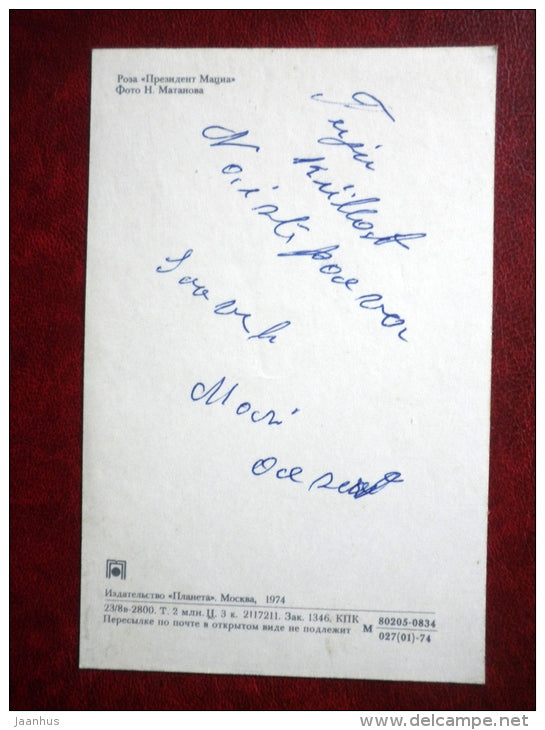 Роза «Президент Мациа»
Фото Н. Матанова
Küllost
Naistepäeva
Soovib
Mari
Издательство «Планета». Москва, 1974
23/8в-2800. Т. 2 млн. Ц. 3 к. 2117211. Зак. 1346. КПК
Пересылке по почте в открытом виде не подлежит
М 80205-0834
027(01)-74
jaanhus / delcampe.net